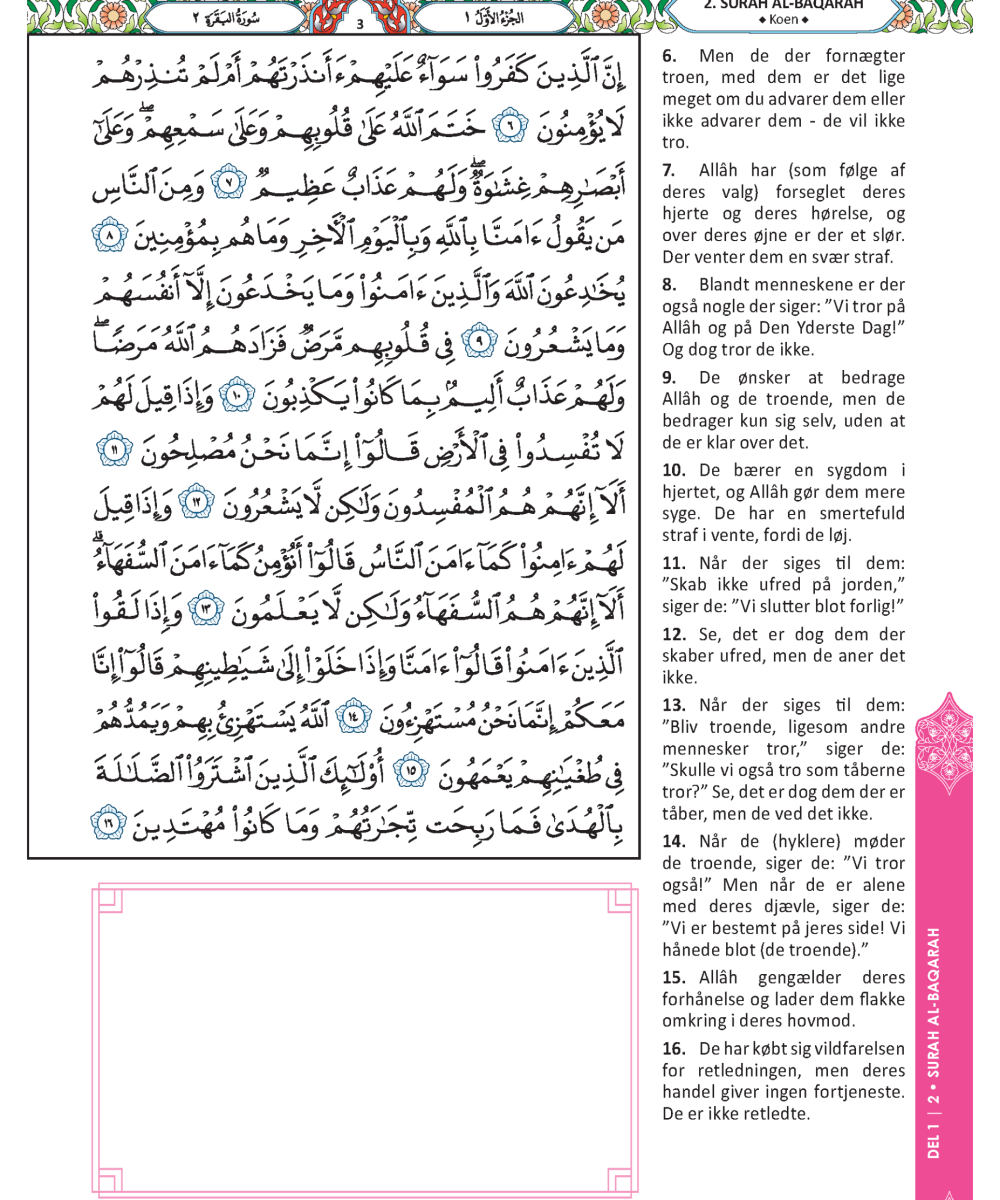 سُورَةُ البَقَرَةِ ٢
3
الجُزْءُ الأَوَّلُ ١
2. SURAH AL-BAQARAH
◆ Koen ◆
إِنَّ ٱلَّذِينَ كَفَرُوا۟ سَوَآءٌ عَلَيْهِمْ ءَأَنذَرْتَهُمْ أَمْ لَمْ تُنذِرْهُمْ
لَا يُؤْمِنُونَ ٦ خَتَمَ ٱللَّهُ عَلَىٰ قُلُوبِهِمْ وَعَلَىٰ سَمْعِهِمْ ۖ وَعَلَىٰٓ
أَبْصَٰرِهِمْ غِشَٰوَةٌ ۖ وَلَهُمْ عَذَابٌ عَظِيمٌ ٧ وَمِنَ ٱلنَّاسِ
مَن يَقُولُ ءَامَنَّا بِٱللَّهِ وَبِٱلْيَوْمِ ٱلْءَاخِرِ وَمَا هُم بِمُؤْمِنِينَ ٨
يُخَٰدِعُونَ ٱللَّهَ وَٱلَّذِينَ ءَامَنُوا۟ وَمَا يَخْدَعُونَ إِلَّآ أَنفُسَهُمْ
وَمَا يَشْعُرُونَ ٩ فِى قُلُوبِهِم مَّرَضٌ فَزَادَهُمُ ٱللَّهُ مَرَضًا ۖ
وَلَهُمْ عَذَابٌ أَلِيمٌۢ بِمَا كَانُوا۟ يَكْذِبُونَ ١٠ وَإِذَا قِيلَ لَهُمْ
لَا تُفْسِدُوا۟ فِى ٱلْأَرْضِ قَالُوٓا۟ إِنَّمَا نَحْنُ مُصْلِحُونَ ١١
أَلَآ إِنَّهُمْ هُمُ ٱلْمُفْسِدُونَ وَلَٰكِن لَّا يَشْعُرُونَ ١٢ وَإِذَا قِيلَ
لَهُمْ ءَامِنُوا۟ كَمَآ ءَامَنَ ٱلنَّاسُ قَالُوٓا۟ أَنُؤْمِنُ كَمَآ ءَامَنَ ٱلسُّفَهَآءُ ۗ
أَلَآ إِنَّهُمْ هُمُ ٱلسُّفَهَآءُ وَلَٰكِن لَّا يَعْلَمُونَ ١٣ وَإِذَا لَقُوا۟
ٱلَّذِينَ ءَامَنُوا۟ قَالُوٓا۟ ءَامَنَّا وَإِذَا خَلَوْا۟ إِلَىٰ شَيَٰطِينِهِمْ قَالُوٓا۟ إِنَّا
مَعَكُمْ إِنَّمَا نَحْنُ مُسْتَهْزِءُونَ ١٤ ٱللَّهُ يَسْتَهْزِئُ بِهِمْ وَيَمُدُّهُمْ
فِى طُغْيَٰنِهِمْ يَعْمَهُونَ ١٥ أُو۟لَٰٓئِكَ ٱلَّذِينَ ٱشْتَرَوُا۟ ٱلضَّلَٰلَةَ
بِٱلْهُدَىٰ فَمَا رَبِحَت تِّجَٰرَتُهُمْ وَمَا كَانُوا۟ مُهْتَدِينَ ١٦
6. Men de der fornægter
troen, med dem er det lige
meget om du advarer dem eller
ikke advarer dem - de vil ikke
tro.
7. Allâh har (som følge af
deres valg) forseglet deres
hjerte og deres hørelse, og
over deres øjne er der et slør.
Der venter dem en svær straf.
8. Blandt menneskene er der
også nogle der siger: ”Vi tror på
Allâh og på Den Yderste Dag!”
Og dog tror de ikke.
9. De ønsker at bedrage
Allâh og de troende, men de
bedrager kun sig selv, uden at
de er klar over det.
10. De bærer en sygdom i
hjertet, og Allâh gør dem mere
syge. De har en smertefuld
straf i vente, fordi de løj.
11. Når der siges til dem:
”Skab ikke ufred på jorden,”
siger de: ”Vi slutter blot forlig!”
12. Se, det er dog dem der
skaber ufred, men de aner det
ikke.
13. Når der siges til dem:
”Bliv troende, ligesom andre
mennesker tror,” siger de:
”Skulle vi også tro som tåberne
tror?” Se, det er dog dem der er
tåber, men de ved det ikke.
14. Når de (hyklere) møder
de troende, siger de: ”Vi tror
også!” Men når de er alene
med deres djævle, siger de:
”Vi er bestemt på jeres side! Vi
hånede blot (de troende).”
15. Allâh gengælder deres
forhånelse og lader dem flakke
omkring i deres hovmod.
16. De har købt sig vildfarelsen
for retledningen, men deres
handel giver ingen fortjeneste.
De er ikke retledte.
DEL 1 | 2 • SURAH AL-BAQARAH